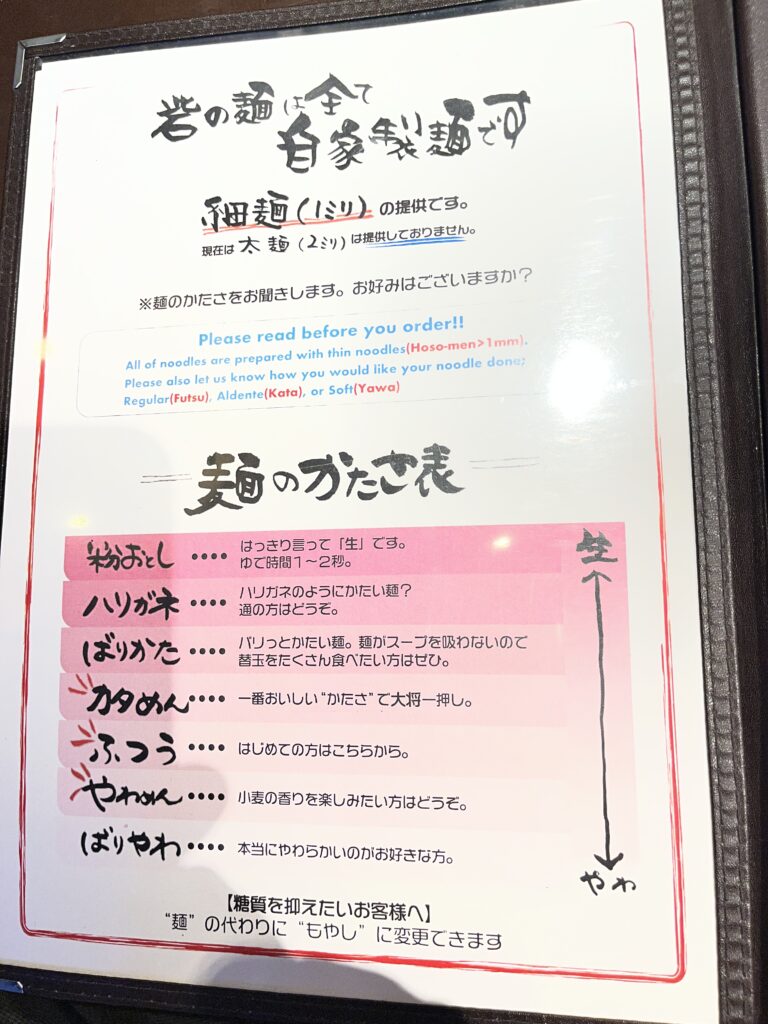 砦の麺は全て
自家製麺です
細麺(1ミリ)の提供です。
現在は太麺(2ミリ)は提供しておりません。
※麺のかたさをお聞きします。お好みはございますか?
Please read before you order!!
All of noodles are prepared with thin noodles(Hoso-men>1mm).
Please also let us know how you would like your noodle done;
Regular(Futsu), Aldente(Kata), or Soft(Yawa)
麺のかたさ表
生
粉おとし •••• はっきり言って「生」です。
ゆで時間1〜2秒。
ハリガネ •••• ハリガネのようにかたい麺?
通の方はどうぞ。
ばりかた •••• バリっとかたい麺。麺がスープを吸わないので
替玉をたくさん食べたい方はぜひ。
カタめん •••• 一番おいしい“かたさ”で大将一押し。
ふつう •••• はじめての方はこちらから。
やわめん •••• 小麦の香りを楽しみたい方はどうぞ。
ばりやわ •••• 本当にやわらかいのがお好きな方。
やわ
【糖質を抑えたいお客様へ】
“麺”の代わりに“もやし”に変更できます